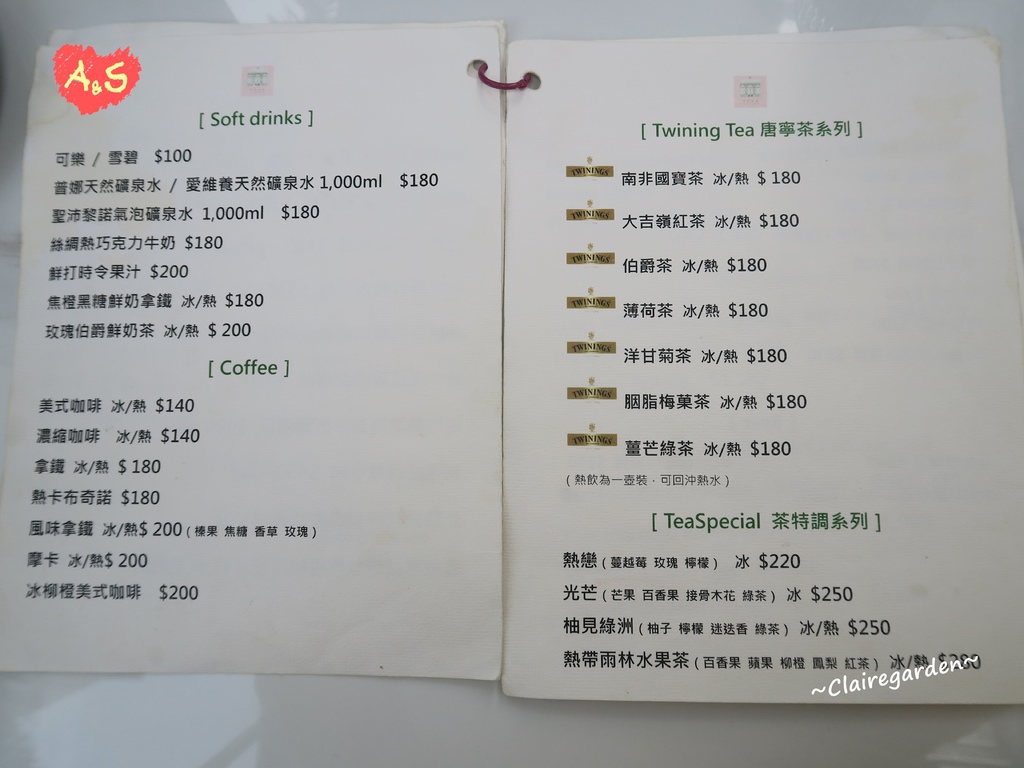 A&S
[ Soft drinks ]
可樂 / 雪碧 $100
普娜天然礦泉水 / 愛維養天然礦泉水 1,000ml $180
聖沛黎諾氣泡礦泉水 1,000ml $180
絲綢熱巧克力牛奶 $180
鮮打時令果汁 $200
焦橙黑糖鮮奶拿鐵 冰/熱 $180
玫瑰伯爵鮮奶茶 冰/熱 $ 200
[ Coffee ]
美式咖啡 冰/熱 $140
濃縮咖啡 冰/熱 $140
拿鐵 冰/熱 $ 180
熱卡布奇諾 $180
風味拿鐵 冰/熱$ 200 ( 榛果 焦糖 香草 玫瑰 )
摩卡 冰/熱$ 200
冰柳橙美式咖啡 $200
[ Twining Tea 唐寧茶系列 ]
TWININGS 南非國寶茶 冰/熱 $ 180
TWININGS 大吉嶺紅茶 冰/熱 $180
TWININGS 伯爵茶 冰/熱 $180
TWININGS 薄荷茶 冰/熱 $180
TWININGS 洋甘菊茶 冰/熱 $180
TWININGS 胭脂梅菓茶 冰/熱 $180
TWININGS 薑芒綠茶 冰/熱 $180
( 熱飲為一壺裝，可回沖熱水 )
[ TeaSpecial 茶特調系列 ]
熱戀 ( 蔓越莓 玫瑰 檸檬 ) 冰 $220
光芒 ( 芒果 百香果 接骨木花 綠茶 ) 冰 $250
柚見綠洲 ( 柚子 檸檬 迷迭香 綠茶 ) 冰/熱 $250
熱帶雨林水果茶 ( 百香果 蘋果 柳橙 鳳梨 紅茶 ) 冰/熱 $280
~Clairegarden~